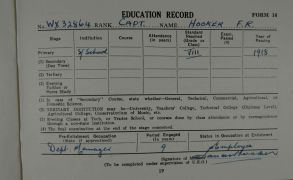 EDUCATION RECORD
FORM 14
No. WX32864 RANK CAPT. NAME HOOKER F.R.
Stage Institution Course Attendance (in years) Standard Reached (Grade or Class) Exam. Passed Year of Passing
Primary S/School VIII 1918
(1) Secondary (Day Time)
(2) Tertiary
(3) Evening Tuition or Home Study
(1) In case of "Secondary" Course, state whether—General, Technical, Commercial, Agricultural, or Domestic Science.
(2) TERTIARY INSTITUTION may be—University, Teachers' College, Technical College (Diploma Level), Agricultural College, Conservatorium of Music, etc.
(3) Evening Classes at Tech. or Trades School, or courses done by class attendance or by correspondence through a non-State institution.
(4) The final examination at the end of the stage concerned.
Pre-Enlistment Occupation (State if apprenticed) Period Engaged (In Years) Status in Occupation at Enlistment
Dept. Manager 9 Employee
Signature of
(To be completed under supervision of U.E.O.)
19